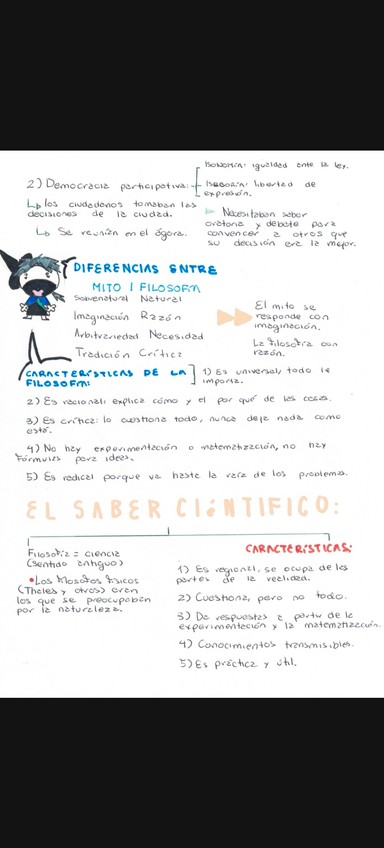 ISONOMÍA: igualdad ante la ley.
2) Democracia participativa:
ISEGORÍA: libertad de
expresión.
los ciudadanos tomaban las
decisiones de la ciudad.
Se reunían en el ágora.
Necesitaban saber
oratoria y debate para
convencer a otros que
su decisión era la mejor.
DIFERENCIAS ENTRE
MITO / FILOSOFÍA
Sobrenatural Natural
Imaginación Razón
Arbitrariedad Necesidad
Tradición Crítica
El mito se
responde con
imaginación.
La filosofía con
razón.
CARACTERÍSTICAS DE LA
FILOSOFÍA:
1) Es universal, todo le
importa.
2) Es racional: explica cómo y el por qué de las cosas.
3) Es crítica: lo cuestiona todo, nunca deja nada como
está.
4) No hay experimentación o matematización, no hay
fórmulas para ideas.
5) Es radical porque va hasta la raíz de los problemas.
EL SABER CIENTÍFICO:
Filosofía = ciencia
(sentido antiguo)
• Los filósofos físicos
(Thales y otros) eran
los que se preocupaban
por la naturaleza.
CARACTERÍSTICAS:
1) Es regional, se ocupa de las
partes de la realidad.
2) Cuestiona, pero no todo.
3) Da respuestas a partir de la
experimentación y la matematización.
4) Conocimientos transmisibles.
5) Es práctica y útil.